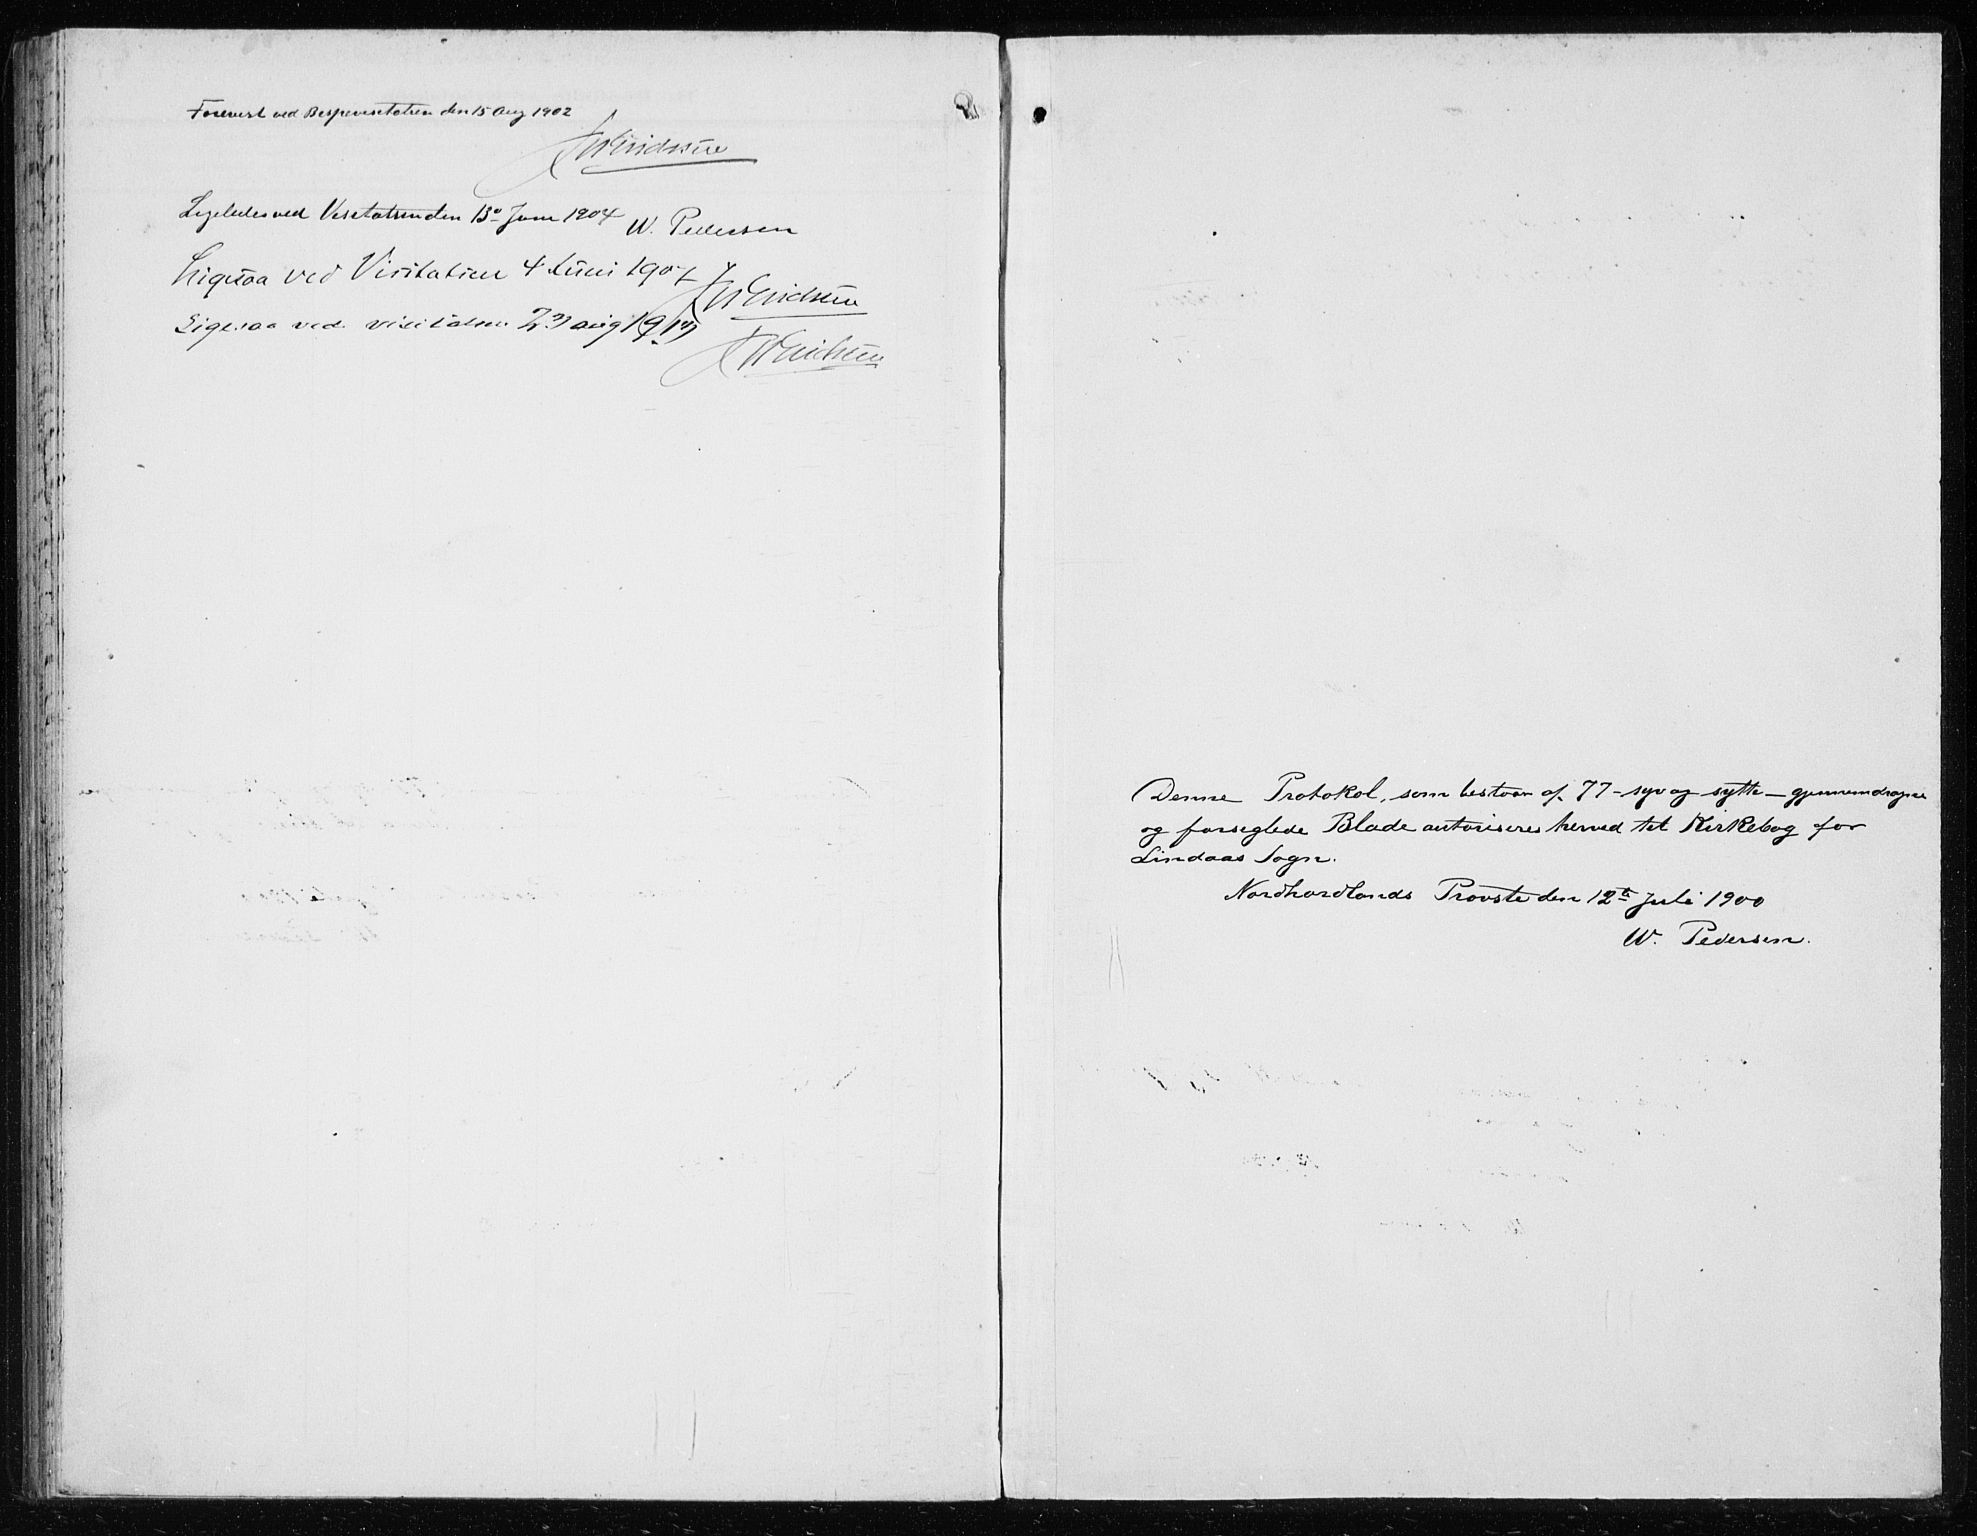 Forevist ved Bispevisitatsen den 15 Aug 1902
Ligeledes ved Visitatsen den 13de Juni 1904 W. Pedersen
Ligesaa ved Visitatsen 4 Juni 1907
Ligesaa ved visitatsen 23 aug 1913
Denne Protokol, som bestaar af 77 - syv og sytti - gjennemdragne
og forseglede Blade autoriseres herved til Kirkebog for
Lindaas Sogn.
Nordhordlands Provsti den 12te Juli 1900
W. Pedersen.